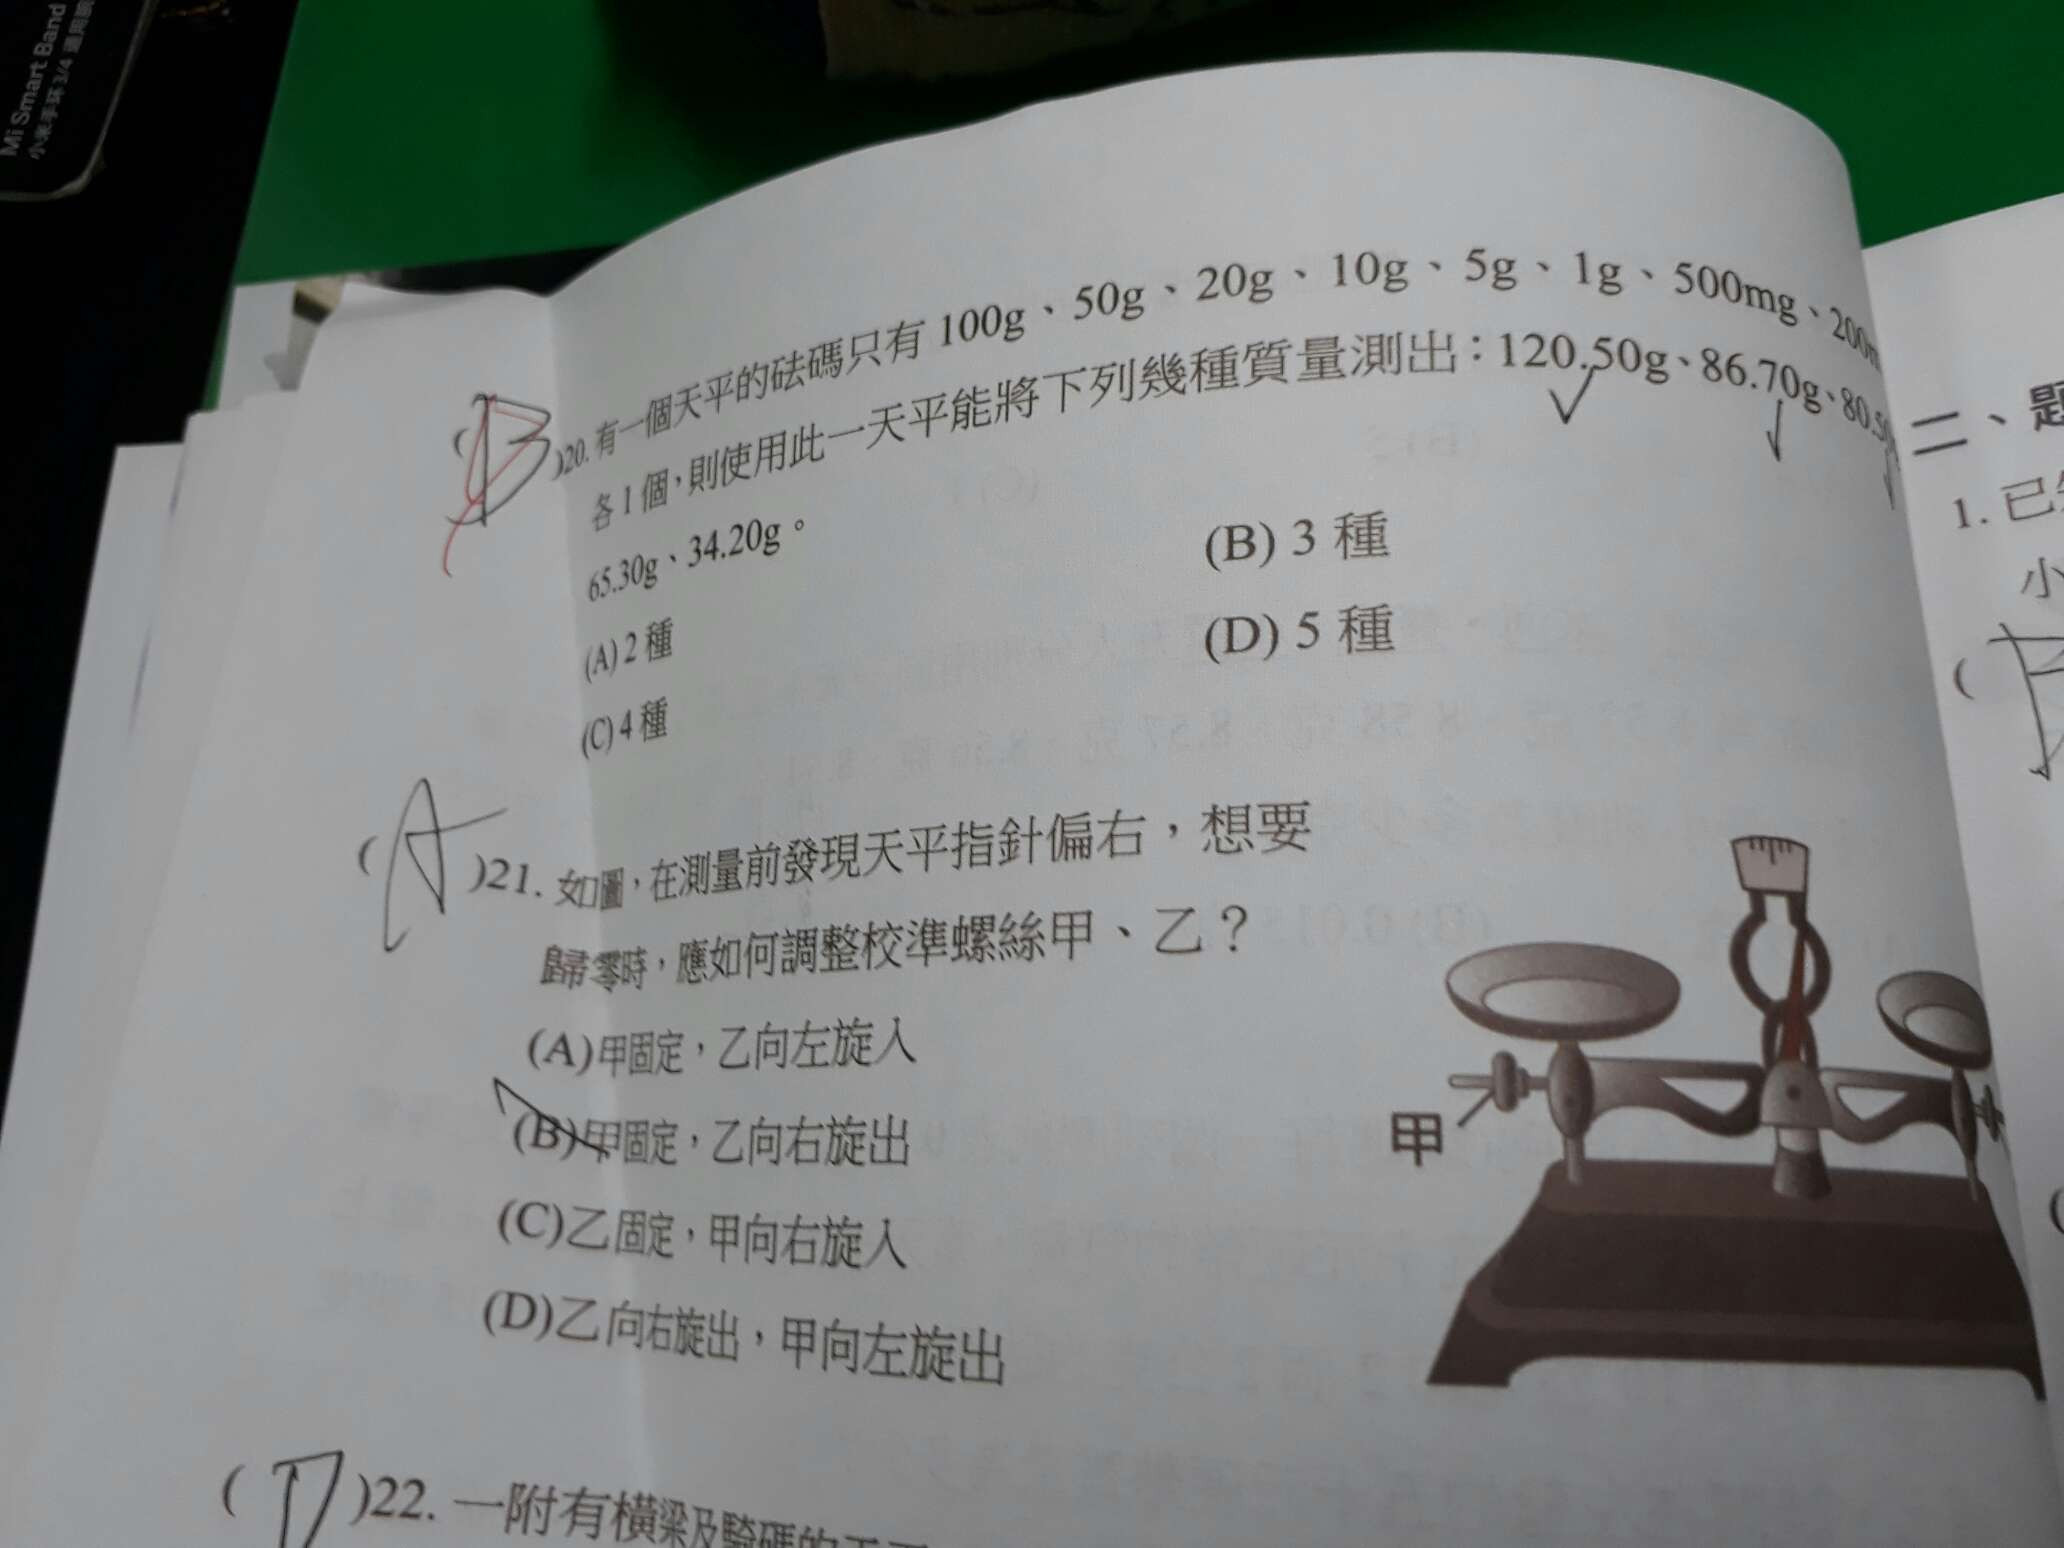 Mi Smart Band
小米手环 3/4 通用腕
(B)20. 有一個天平的砝碼只有 100g、50g、20g、10g、5g、1g、500mg、200m
各 1 個，則使用此一天平能將下列幾種質量測出：120.50g、86.70g、80.50g
65.30g、34.20g。
(A) 2 種
(B) 3 種
(C) 4 種
(D) 5 種
(A)21. 如圖，在測量前發現天平指針偏右，想要
歸零時，應如何調整校準螺絲甲、乙？
(A)甲固定，乙向左旋入
(B)甲固定，乙向右旋出
(C)乙固定，甲向右旋入
(D)乙向右旋出，甲向左旋出
甲
( )22. 一附有橫梁及騎碼的天平
二、題
1. 已知
小